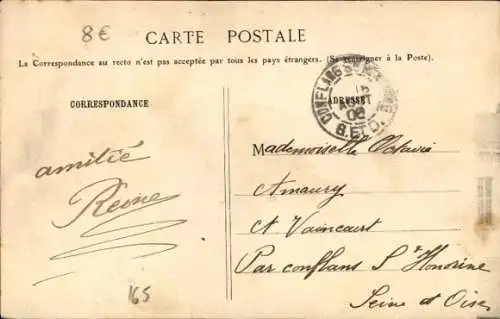 8€
CARTE POSTALE
La Correspondance au recto n'est pas acceptée par tous les pays étrangers. (Se renseigner à la Poste).
CORRESPONDANCE
ADRESSE
CONFLANS
08
S. ET O.
amitié
165
Mademoiselle Octavie
Amaury
A Vaincourt
Par conflans Ste Honorine
Seine et Oise